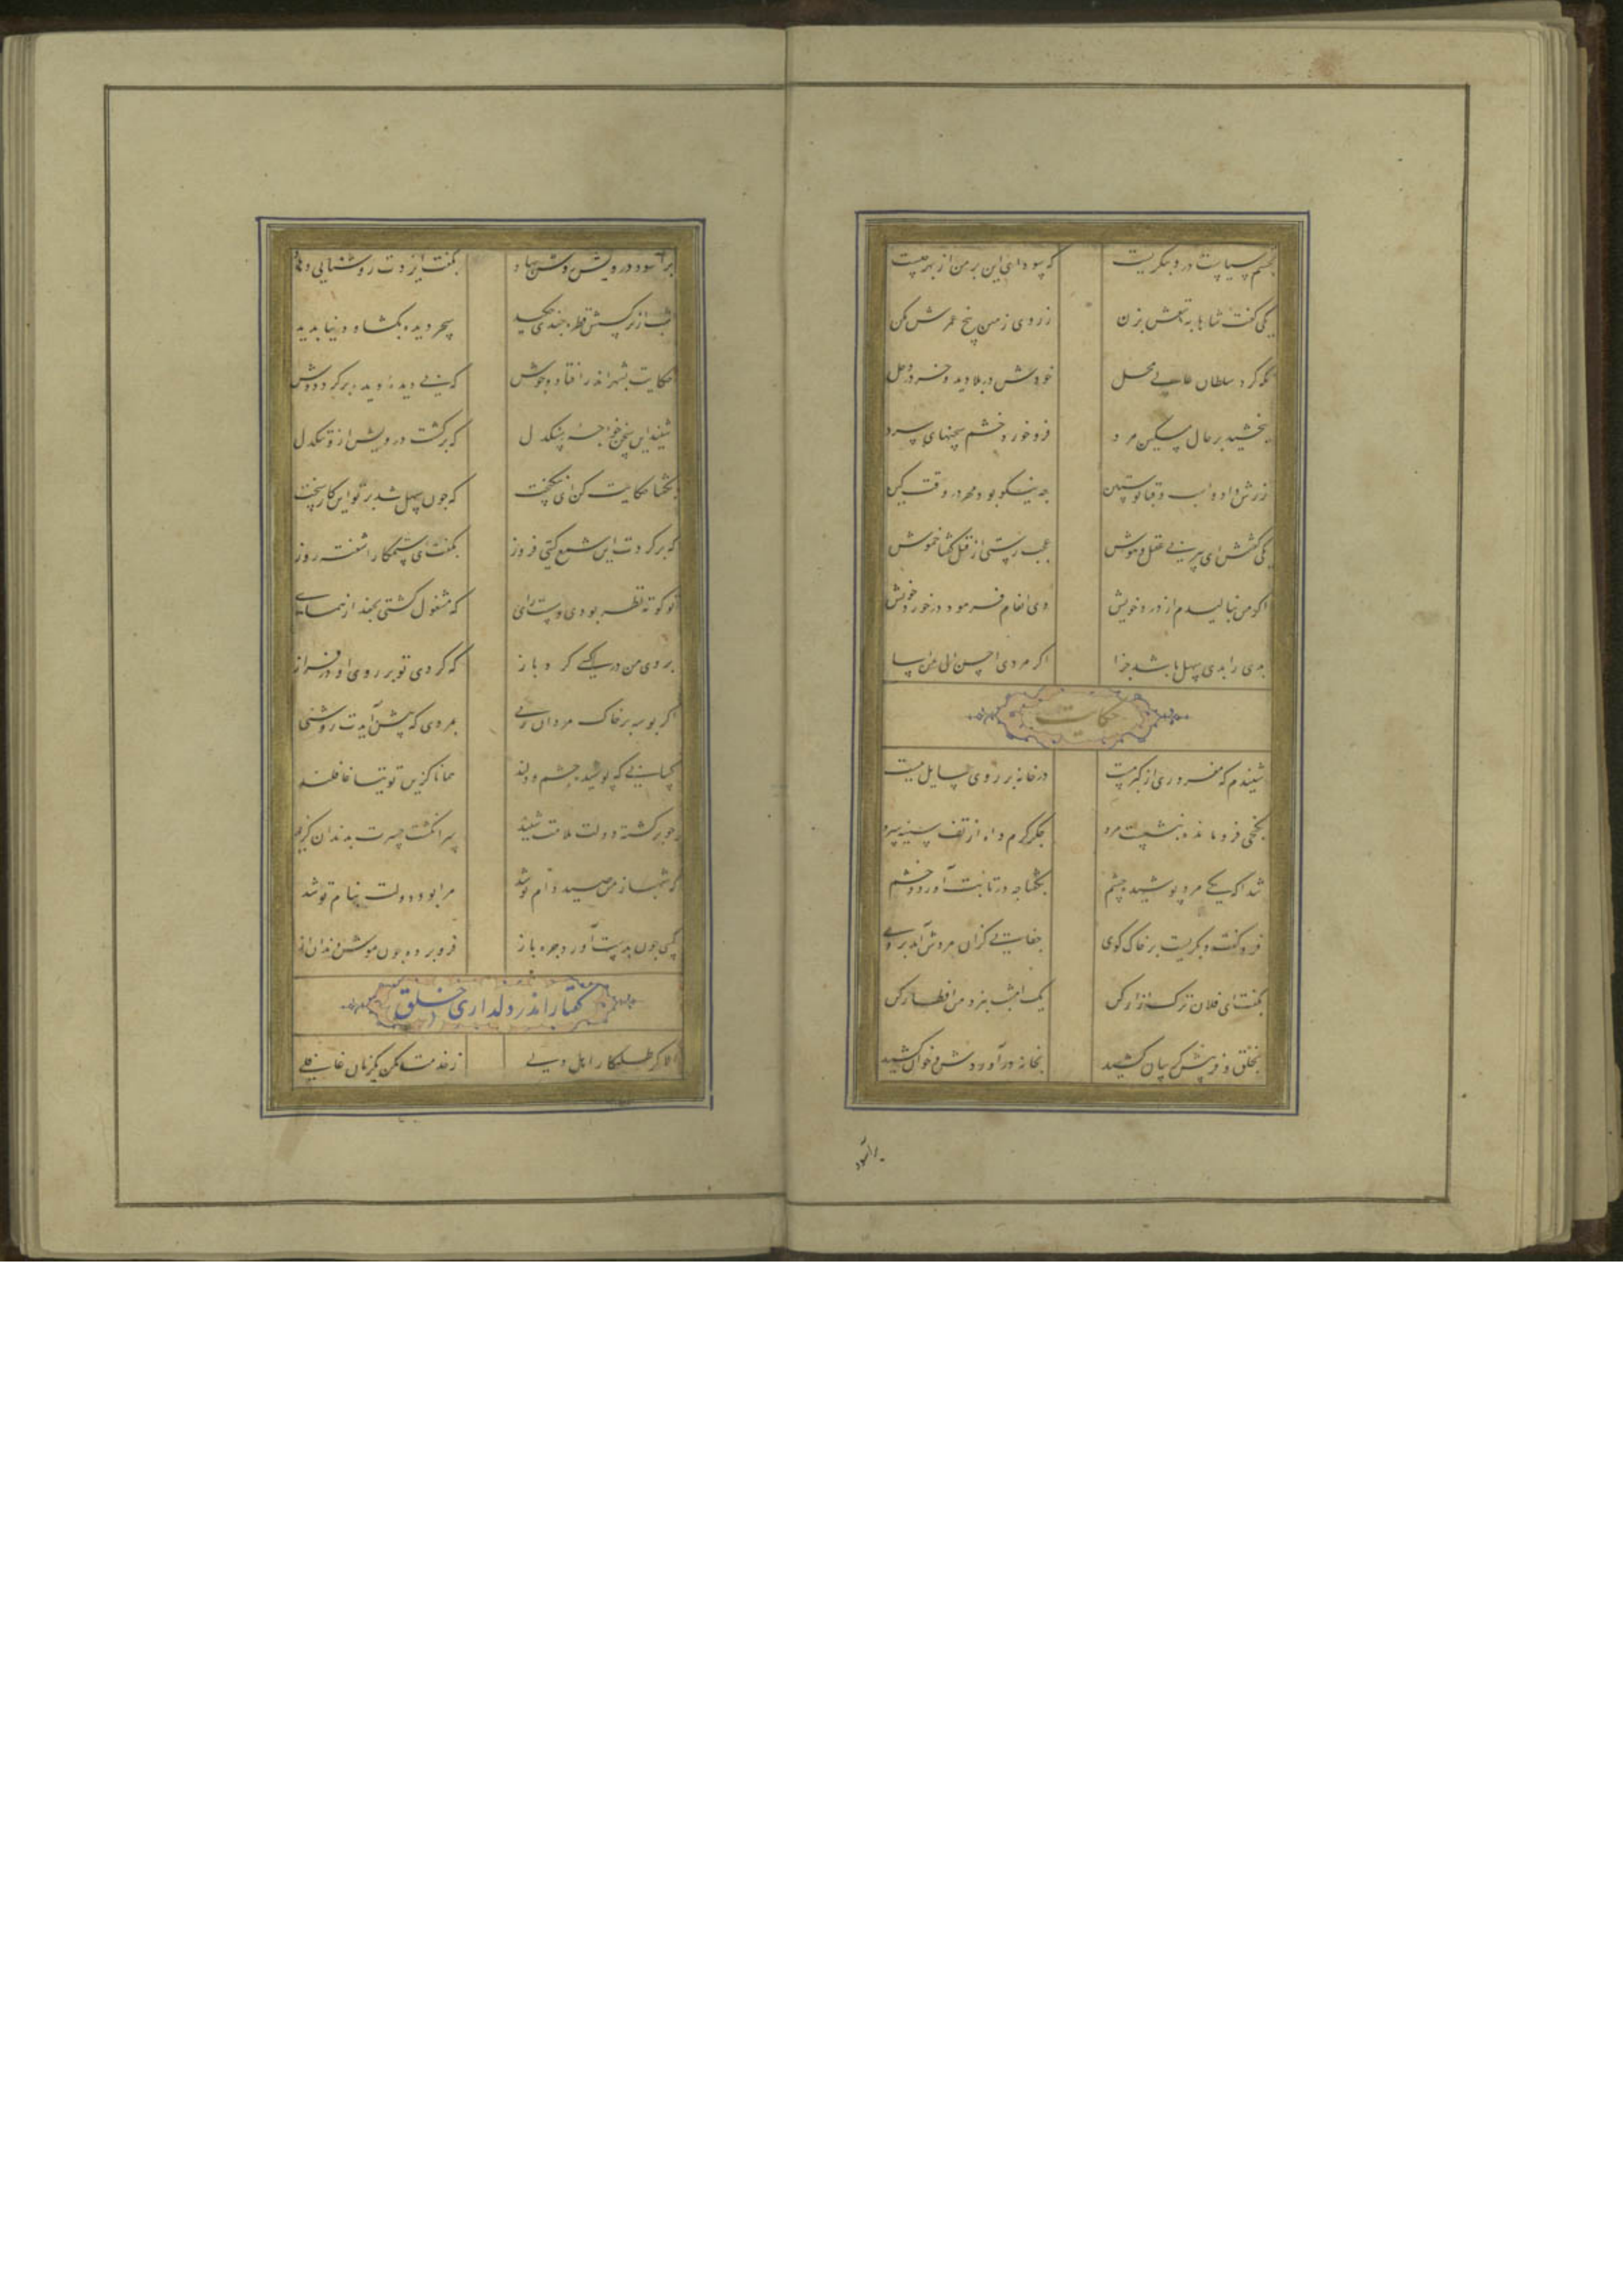 بچشم سیاست درو بنگریست که سودای این بر من از بهر چیست
یکی گفت شاها به تیغش بزن ز روی زمین بیخ عمرش بکن
نگه کرد سلطان عالی محل خودش در بلا دید و خر در وحل
ببخشید بر حال مسکین مرد فرو خورد خشم سخنهای سرد
زرش داد و اسب و قبا پوستین چه نیکو بود مهر در وقت کین
یکی گفتش ای پیر بی عقل و هوش عجب رستی از قتل گفتا خموش
اگر من بنالیدم از درد خویش وی انعام فرمود در خورد خویش
بدی را بدی سهل باشد جزا اگر مردی احسن الی من اسا
حکایت
شنیدم که مغروری از کبر مست در خانه بر روی سایل ببست
بکنجی فرو ماند و بنشست مرد جگر گرم و آه از تف سینه سرد
شنید آن یکی مرد پوشیده چشم بگفتا چه در تابت آورد و خشم
فرو گفت و بگریست بر خاک کوی جفایی کزان مردش آمد بروی
بگفت ای فلان ترک آزار کن یک امشب بنزد من افطار کن
بخلق و فریبش گریبان کشید بخانه در آوردش و خوان کشید
برآسود
برآسود درویش روشن نهاد بگفت ایزدت روشنایی دهاد
شب از نرگسش قطره چندی چکید سحر دیده بگشاد و دنیا بدید
حکایت بشهر اندر افتاد و جوش که بی دیده دیده بر کرد دوش
شنید این سخن خواجه سنگدل که برگشت درویش ازو تنگدل
بگفتا حکایت کن ای نیکبخت که چون سهل شد بر تو این کار سخت
که بر کردت این شمع گیتی فروز بگفت ای ستمکار آشفته روز
تو کوته نظر بودی و سست رای که مشغول گشتی بجغد از همای
بروی من این در کسی کرد باز که کردی تو بر روی او در فراز
اگر بوسه بر خاک مردان زنی بمردی که پیش آیدت روشنی
کسانی که پوشیده چشم دلند همانا کزین توتیا غافلند
چو برگشته دولت ملامت شنید سر انگشت حسرت بدندان گزید
که شهباز من صید دام تو شد مرا بود دولت بنام تو شد
کسی چون بدست آورد جره باز فرو برده چون موش دندان آز
گفتار اندر دلداری خلق
الا گر طلبکار اهل دلی ز خدمت مکن یکزمان غافلی